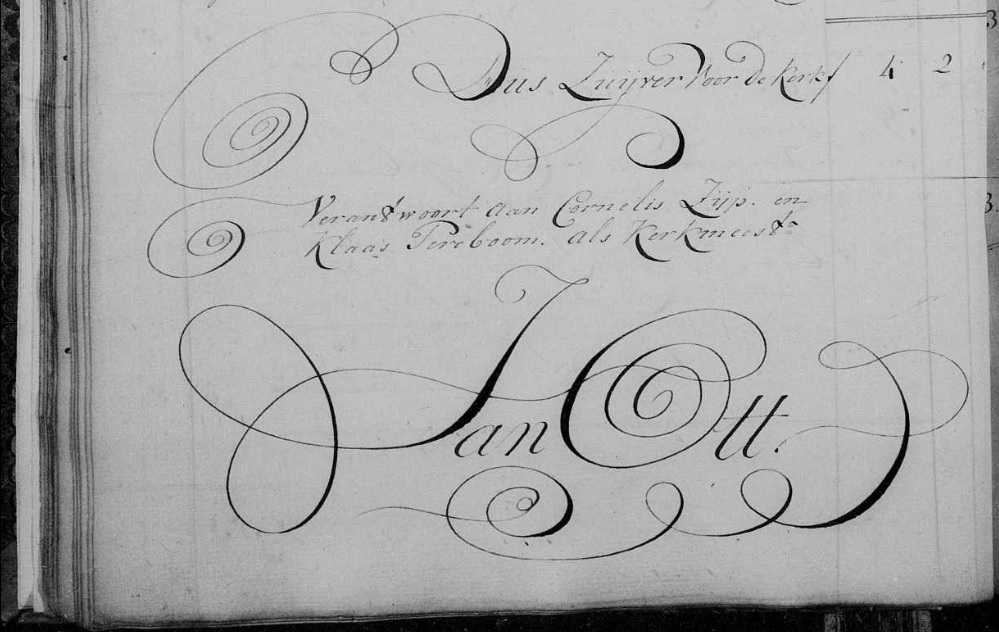 Dus Zuijver Voor de Kerk f 4 2
Verantwoort aan Cornelis Zijp. en
Klaas Pereboom. als Kerkmeestr
Jan Ott.